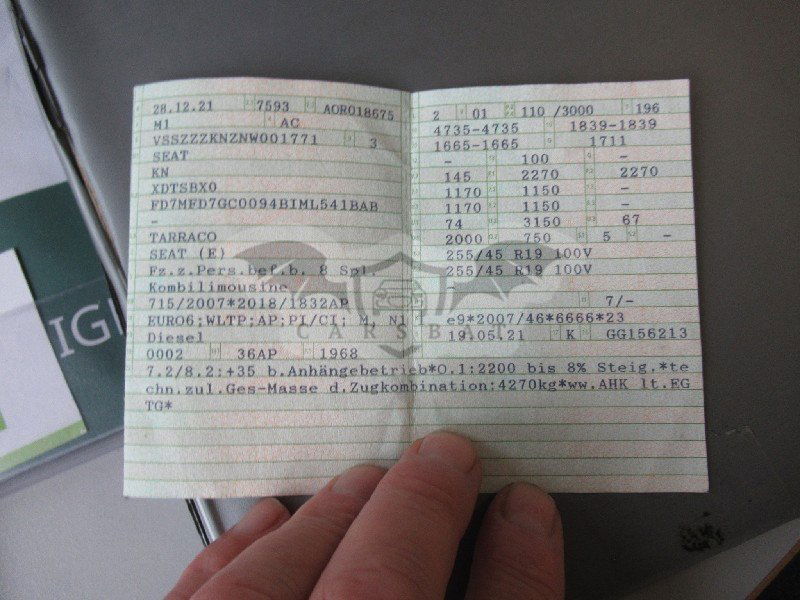 28.12.21 7593 AOR018675
M1 AC
VSSZZZKNZNW001771 3
SEAT
KN
XDTSBX0
FD7MFD7GC0094BIML541BAB
-
TARRACO
SEAT (E)
Fz.z.Pers.bef.b. 8 Spl.
Kombilimousine
715/2007*2018/1832AP
EURO6;WLTP;AP;PI/CI; M, N1
Diesel
0002 36AP 1968
2 01 110 /3000 196
4735-4735 1839-1839
1665-1665 1711
- 100 -
145 2270 2270
1170 1150 -
1170 1150 -
74 3150 67
2000 750 5 -
255/45 R19 100V
255/45 R19 100V
-
- 7/-
e9*2007/46*6666*23
19.05.21 K GG156213
7.2/8.2:+35 b.Anhängebetrieb*O.1:2200 bis 8% Steig.*te
chn.zul.Ges-Masse d.Zugkombination:4270kg*ww.AHK lt.EG
TG*
CARSBAT